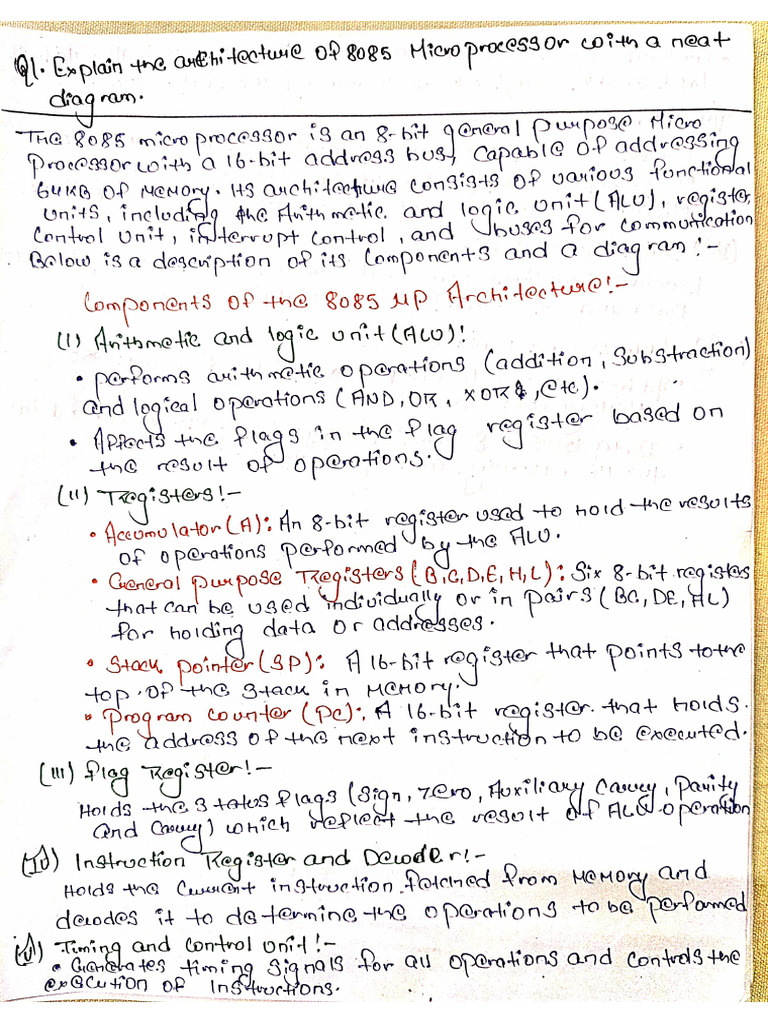 Q1. Explain the architecture of 8085 Microprocessor with a neat
diagram.
The 8085 microprocessor is an 8-bit general purpose Micro
Processor with a 16-bit address bus, capable of addressing
64KB of Memory. Its architecture consists of various functional
units, including the Arithmetic and logic unit (ALU), register,
Control Unit, interrupt control, and buses for communication
Below is a description of its Components and a diagram:-
Components of the 8085 μp Architecture:-
(I) Arithmetic and logic unit (ALU):
• performs arithmetic operations (addition, Substraction)
and logical operations (AND, OR, XOR, etc).
• Affects the flags in the flag register based on
the result of operations.
(II) Registers:-
• Accumulator (A): An 8-bit register used to hold the results
of operations performed by the ALU.
• General purpose Registers (B,C,D,E,H,L): Six 8-bit registers
that can be used individually or in pairs (BC, DE, HL)
for holding data or addresses.
• Stack pointer (SP): A 16-bit register that points to the
top of the stack in Memory.
• Program counter (PC): A 16-bit register that holds
the address of the next instruction to be executed.
(III) Flag Register:-
Holds the status flags (Sign, Zero, Auxiliary Carry, Parity
and Carry) which reflect the result of ALU operation
(IV) Instruction Register and Decoder:-
Holds the Current instruction fetched from Memory and
decodes it to determine the operations to be performed
(V) Timing and control unit:-
• Generates timing signals for all operations and controls the
execution of instructions.